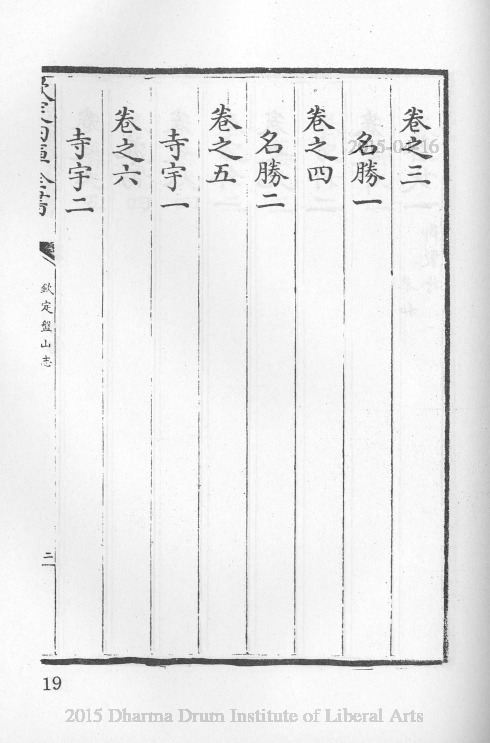 卷之三
名勝一
卷之四
名勝二
卷之五
寺宇一
卷之六
寺宇二
欽定四庫全書
欽定盤山志
二
19
2015 Dharma Drum Institute of Liberal Arts